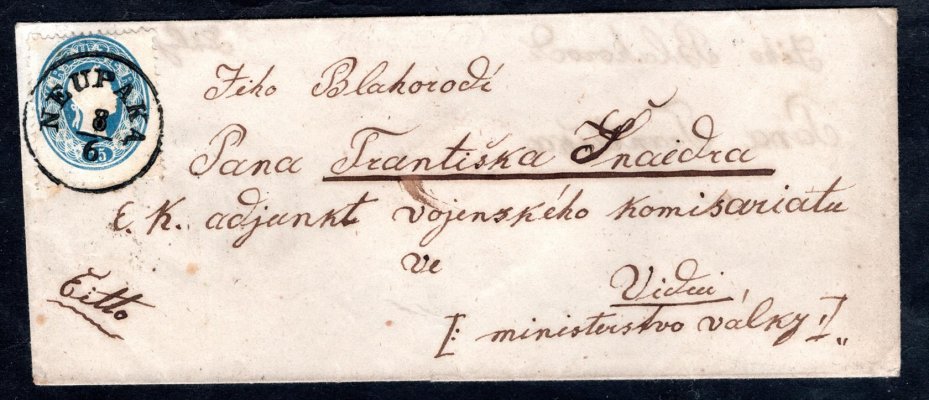 NEUPAKA
8
6
15
Jeho Blahorodí
Pana Františka Šnaidra
c. k. adjunkt vojenského komisariatu
ve
Vídni,
Titto
[: ministerstvo války :]